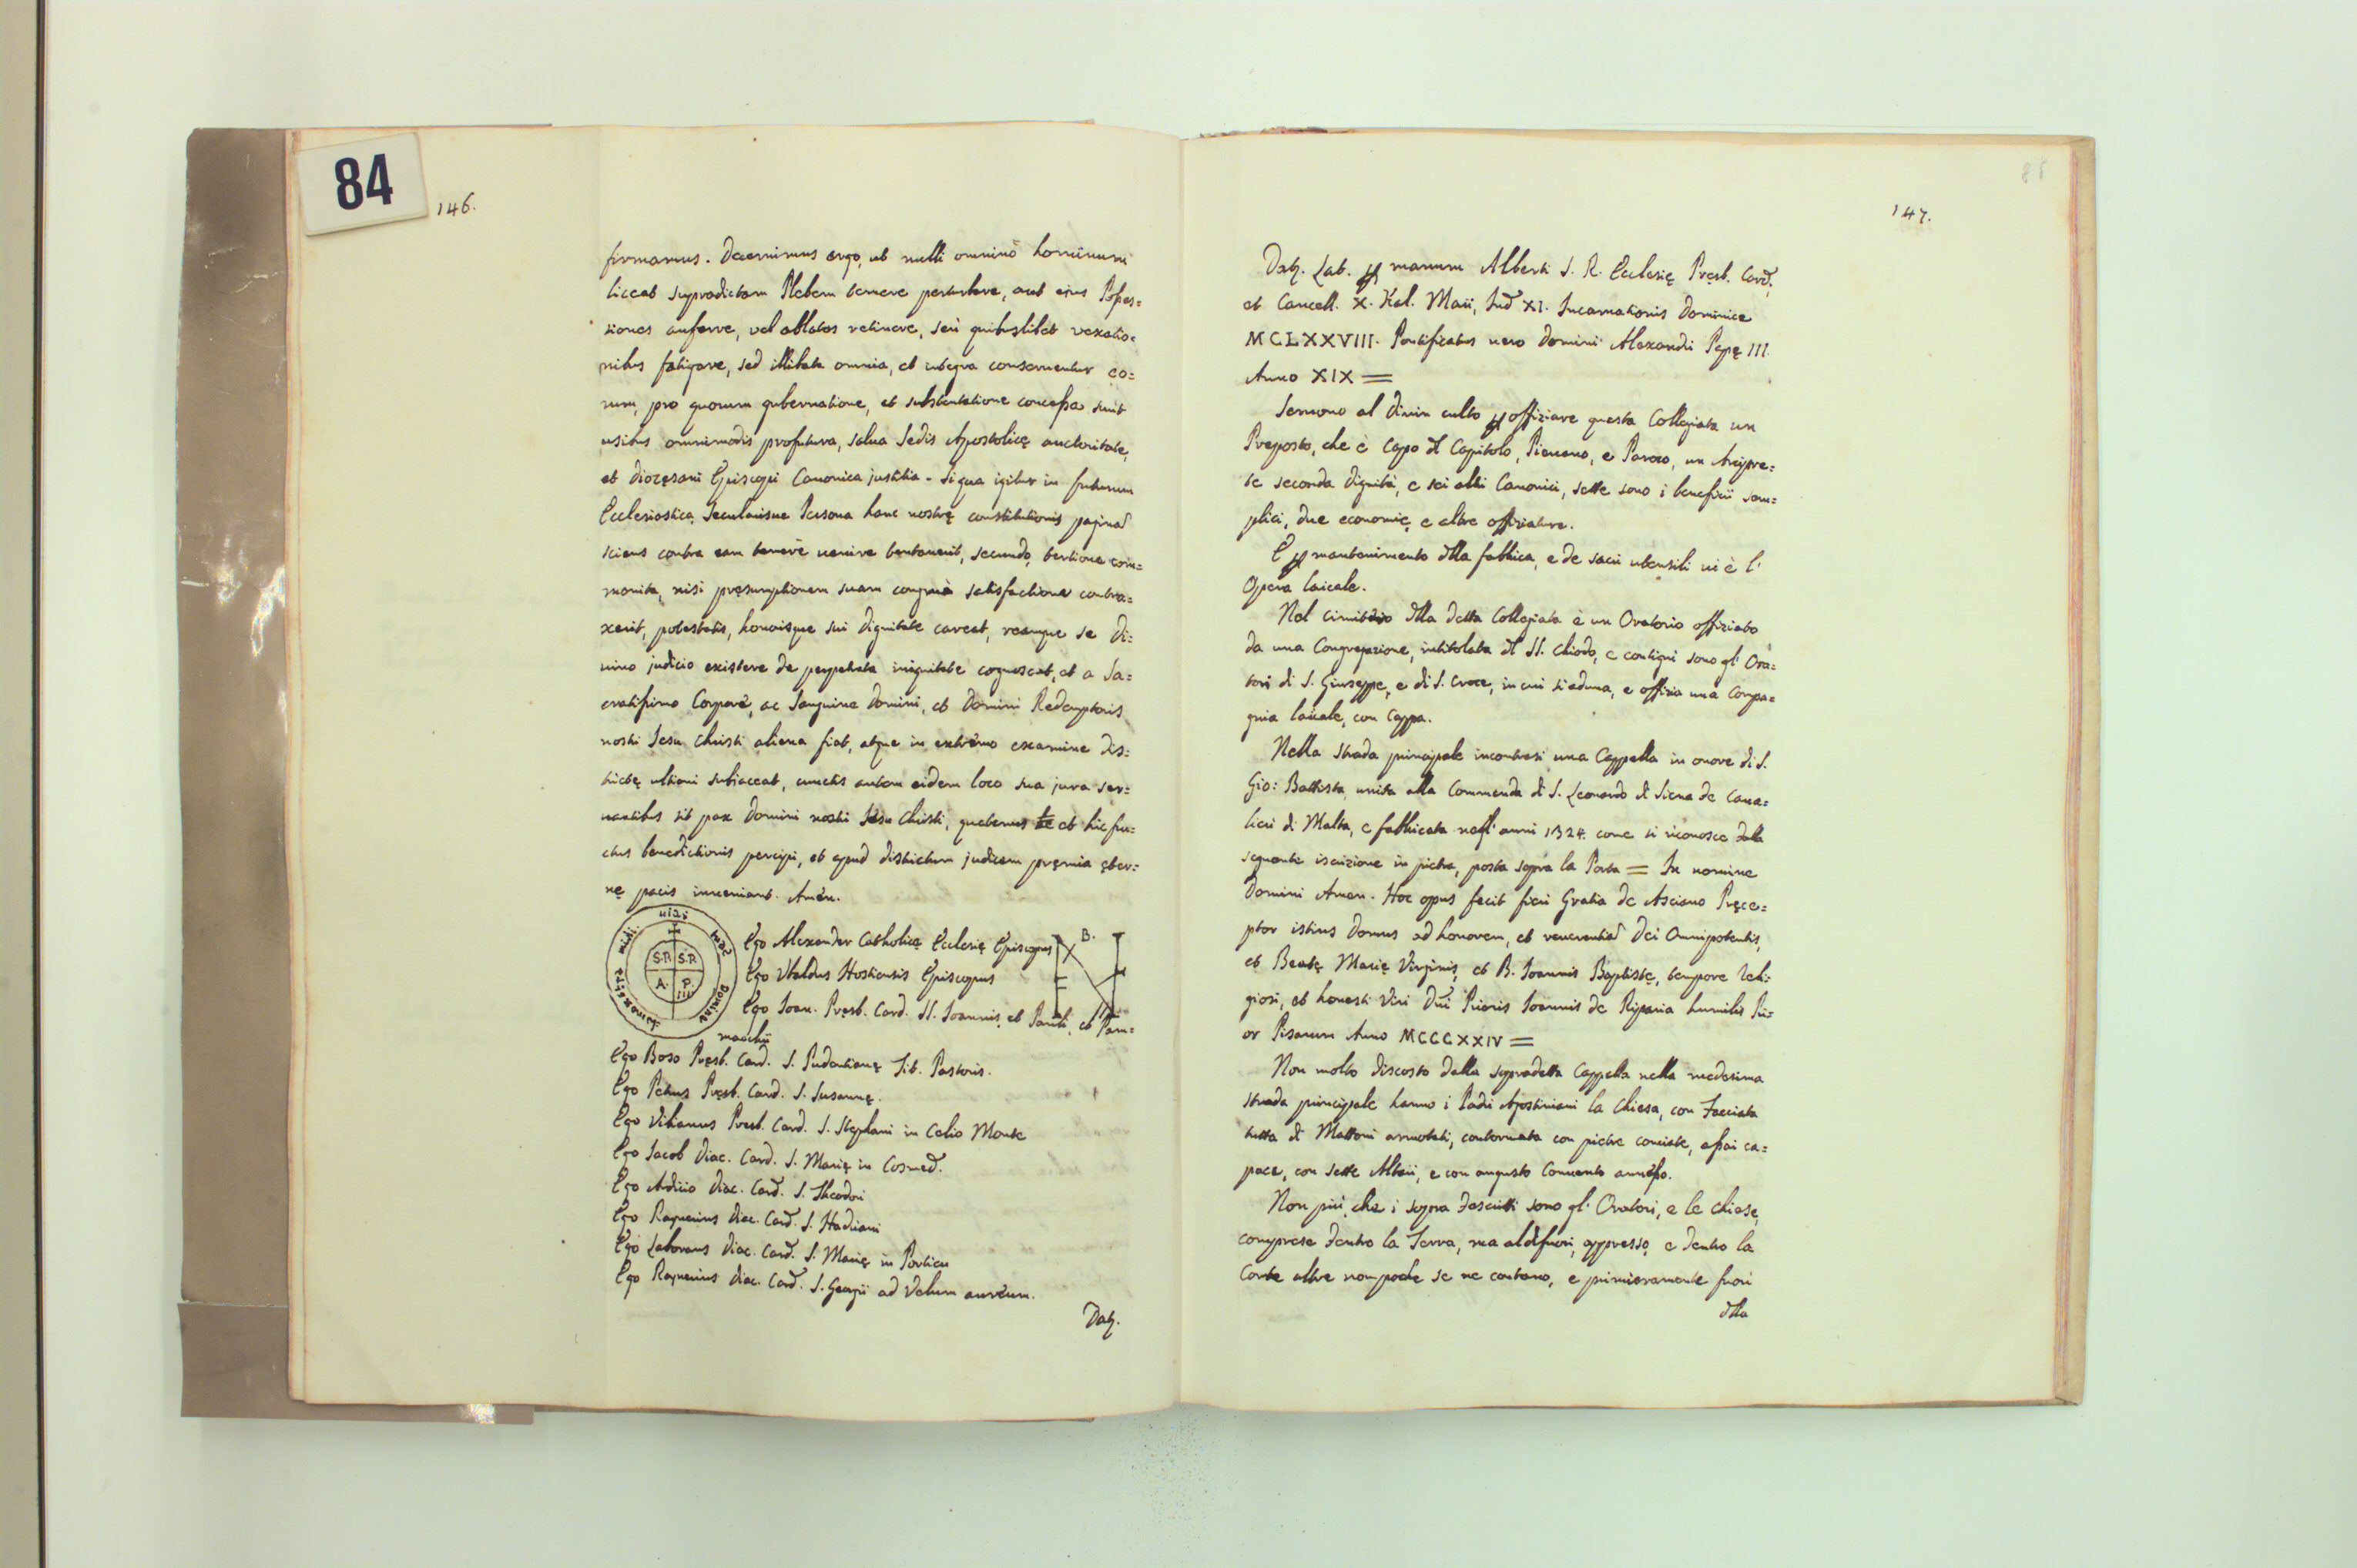 84
146.
firmamus. Decernimus ergo, ut nulli omninò hominum
liceat supradictam Plebem temere perturbare, aut eius Posses=
siones auferre, vel ablatas retinere, seù quibuslibet vexatio=
nibus fatigare, sed illibata omnia, et integra conserventur eo=
rum, pro quorum gubernatione, et substentatione concessa sunt
usibus omnimodis profutura, salua Sedis Apostolicę auctoritate,
et Diocęsani Episcopi Canonica justitia. Siqua igitur in futurum
Ecclesiastica, Secularisue Persona hanc nostrę constitutionis paginā
sciens contra eam temerè uenire tentauerit, secundo, tertioue com=
monita, nisi pręsumptionem suam congruà satisfactione contra=
xerit, potestatis, honorisque sui Dignitate careat, reamque se Di=
uino judicio existere de perpetrata iniquitate cognoscat, et a Sa=
cratissimo Corpore, ac Sanguine Domini, et Domini Redemptoris
nostri Jesu Christi aliena fiat, atque in extremo examine Dis=
trictę ultioni subiaceat, cunctis autem eidem loco sua jura ser=
uantibus sit pax Domini nostri Jesu Christi, quatenus et hic fru=
ctus benedictionis percipi, et apud districtum judicem pręmia ęter=
nę pacis inueniant. Amen.
S.P. S.P.
A. P.
III
Ego Alexander Catholicę Ecclesię Episcopus
B.
Ego Vbaldus Hostiensis Episcopus
Ego Joan. Pręsb. Card. SS. Joannis, et Pauli, et Pam=
machii
Ego Boso Pręsb. Card. S. Pudentianę Tit. Pastoris.
Ego Petrus Pręsb. Card. S. Susannę.
Ego Vibianus Presb. Card. S. Stephani in Celio Monte
Ego Jacob Diac. Card. S. Marię in Cosmed.
Ego Ardicio Diac. Card. S. Theodori
Ego Raynerius Diac. Card. S. Hadriani
Ego Laborans Diac. Card. S. Marię in Porticu
Ego Raynerius Diac. Card. S. Georgii ad Velum aureum.
Datꝫ.
85
147.
Datꝫ. Lat. ꝑ manum Alberti S. R. Ecclesię Pręsb. Card.,
et Cancell. X. Kal. Maii, Ind XI. Incarnationis Dominice
MCLXXVIII. Pontificatus uero Domini Alexandri Papę III.
Anno XIX =
Seruono al Diuin culto ꝑ offiziare questa Collegiata un
Preposto, che è Capo dl Capitolo, Pieuano, e Paroco, un Arcipre=
te seconda Dignità, e sei altri Canonici, sette sono i beneficii sem=
plici, due economie, e altre offiziature.
E ꝑ mantenimento dlla fabbrica, e de sacri utensili ui è l'
Opera laicale.
Nel cimiterio dlla detta Collegiata è un Oratorio offiziato
da una Congregazione, intitolata dl SS. Chiodo, e contigui sono gl' Ora=
tori di S. Giuseppe, e di S. Croce, in cui si aduna, e offizia una Compa=
gnia laicale, con Cappa.
Nella strada principale incontrasi una Cappella in onore di S.
Gio: Battista, unita alla Commenda di S. Leonardo di Siena de Caua=
lieri di Malta, e fabbricata negl' anni 1324. come si riconosce dalla
seguente iscrizione in pietra, posta sopra la Porta = In nomine
Domini Amen. Hoc opus fecit fieri Gratia de Asciano Pręce=
ptor istius Domus ad honorem, et reuerentiā Dei Omnipotentis,
et Beatę Marię Virginis, et B. Joannis Baptistę, tempore Reli=
giosi, et honesti Viri Dñi Prioris Joannis de Riparia humilis Pri=
or Pisarum Anno MCCCXXIV =
Non molto discosto dalla sopradetta Cappella nella medesima
strada principale hanno i Padri Agostiniani la Chiesa, con Facciata
tutta di Mattoni arrotati, contornata con pietre conciate, assai ca=
pace, con sette Altari, e con angusto Conuento annesso.
Non più, che i sopra descritti sono gl' Oratori, e le chiese,
comprese dentro la Terra, ma al di fuori, appresso, e dentro la
Corte altre non poche se ne contano, e primieramente fuori
dlla